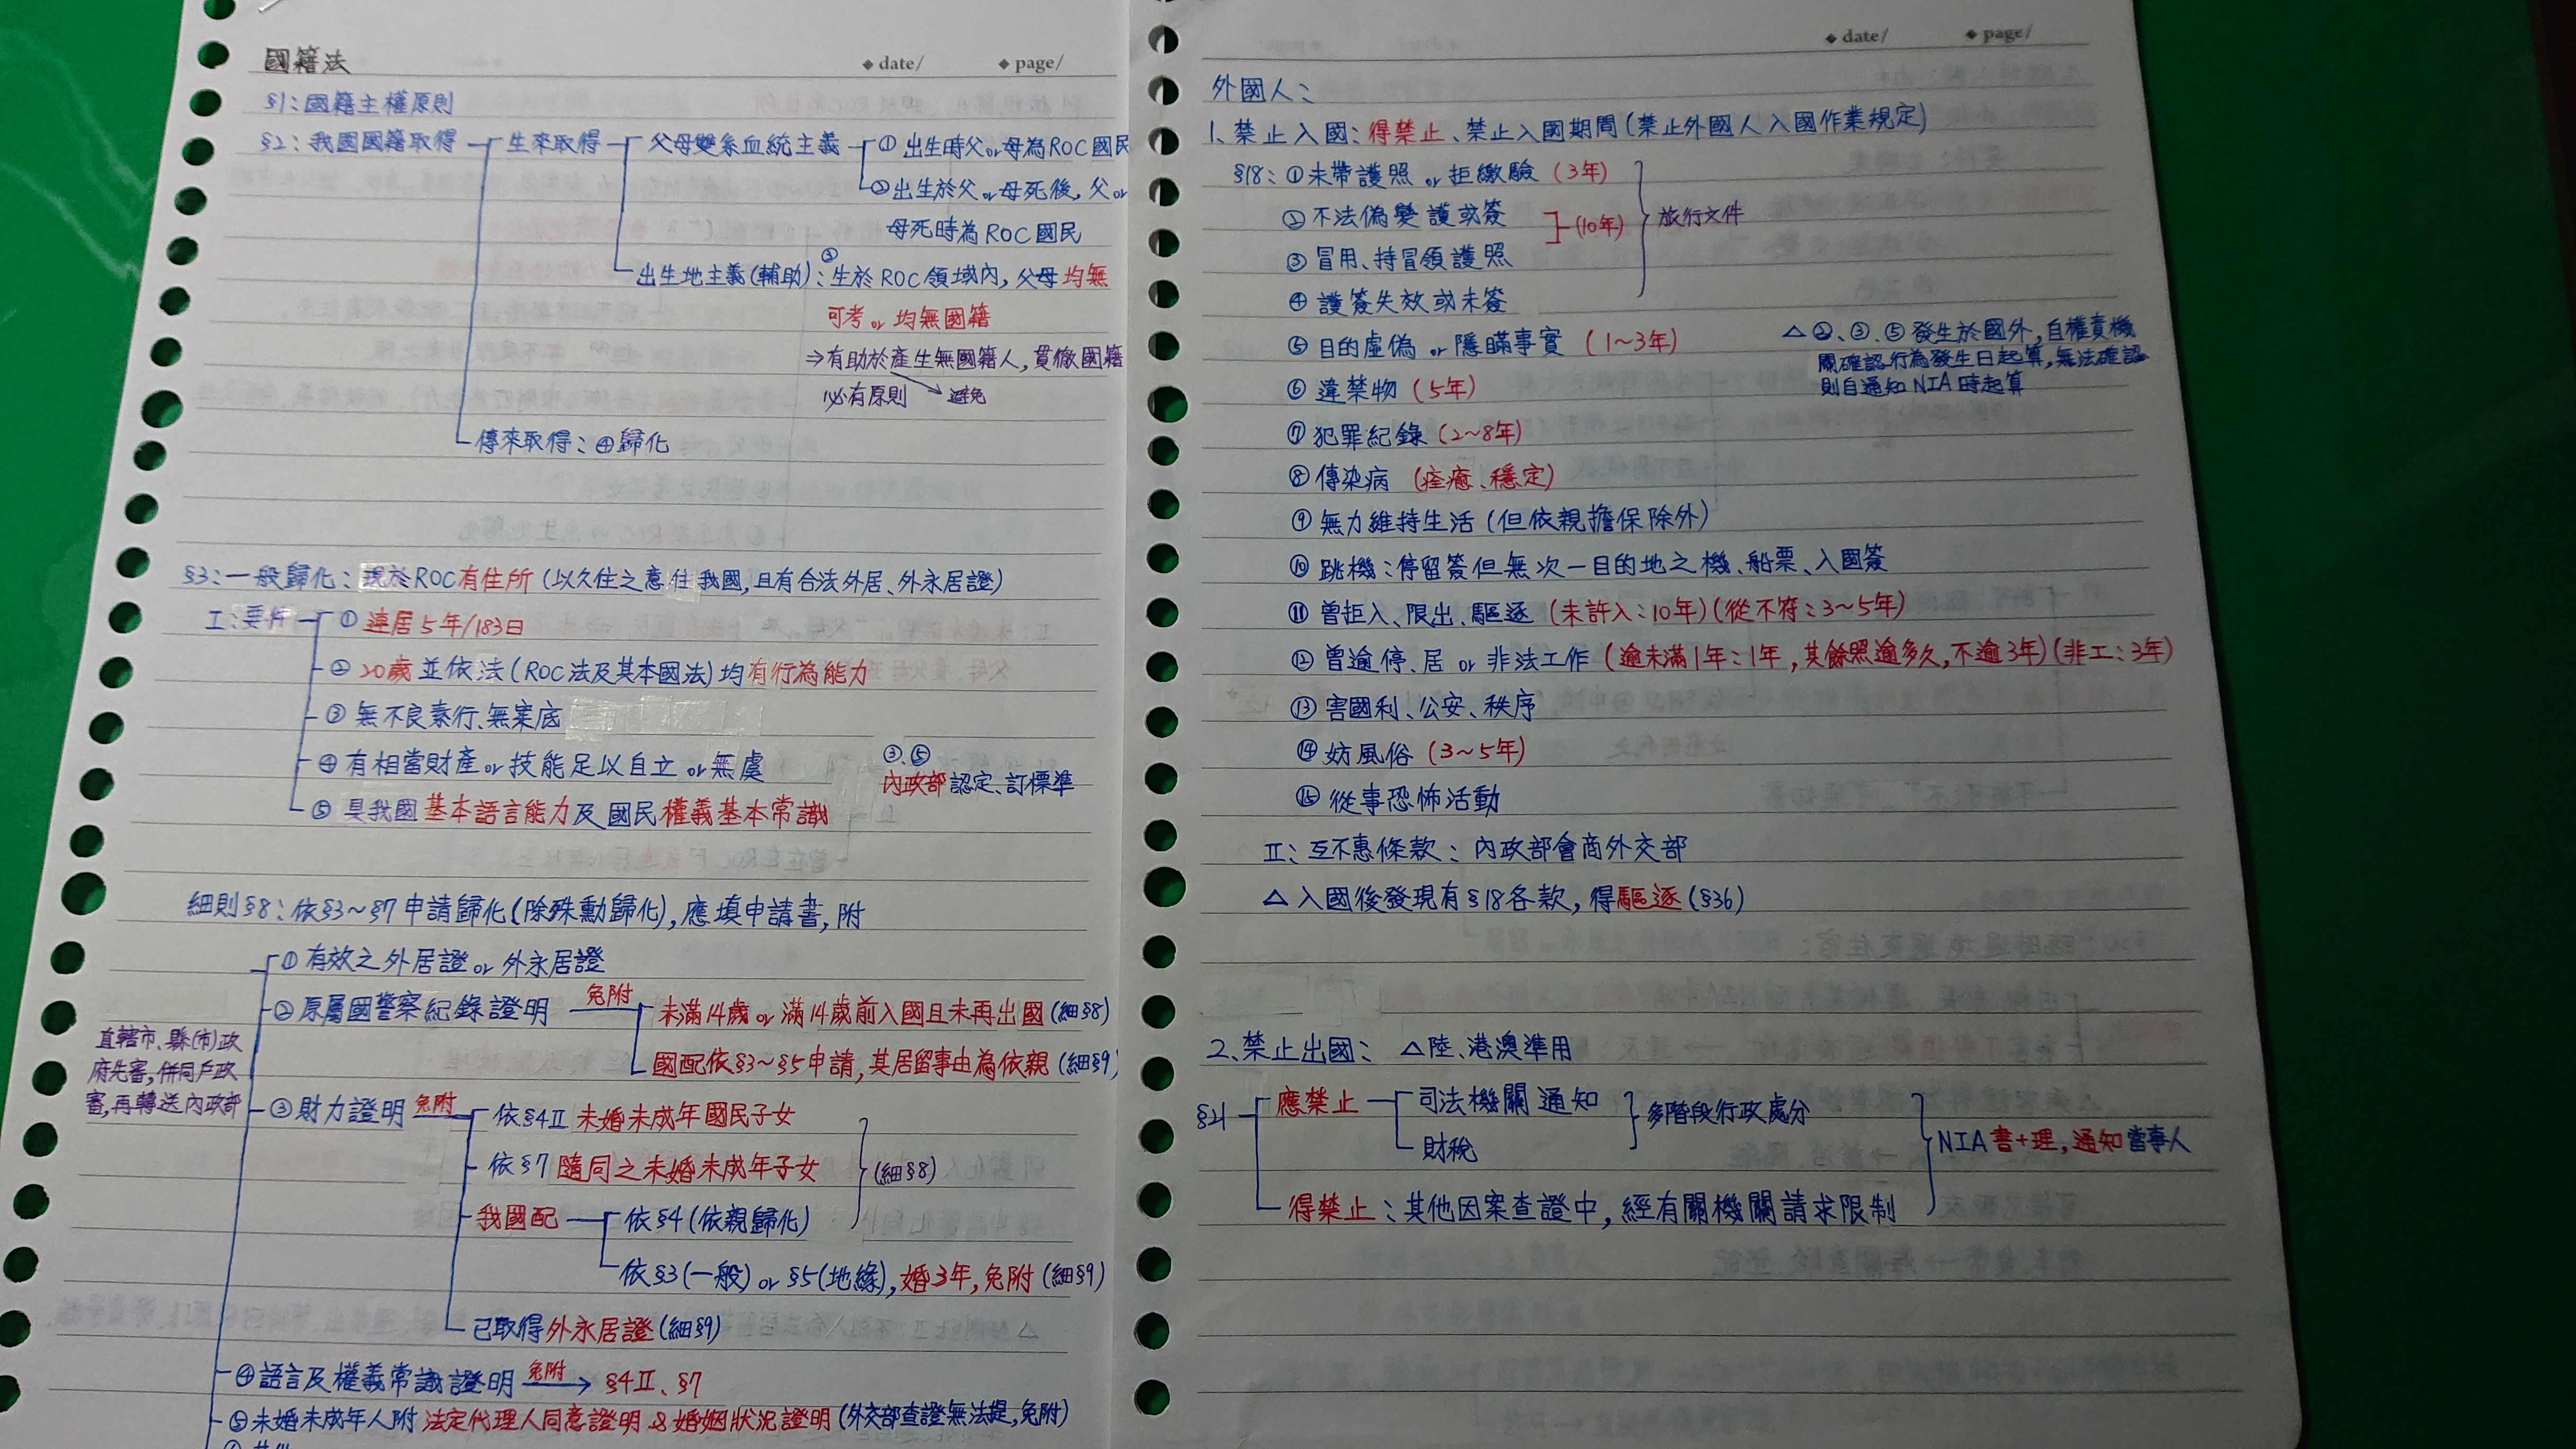 國籍法
◆ date/ ◆ page/
§1：國籍主權原則
§2：我國國籍取得 生來取得 父母雙系血統主義 ① 出生時父or母為ROC國民
②出生於父or母死後，父or
母死時為ROC國民
出生地主義(輔助)：③生於ROC領域內，父母均無
可考or均無國籍
⇒有助於產生無國籍人，貫徹國籍
必有原則 避免
傳來取得：④歸化
§3：一般歸化：現於ROC有住所(以久住之意住我國，且有合法外居、外永居證)
I：要件 ① 連居5年/183日
② 20歲並依法(ROC法及其本國法)均有行為能力
③ 無不良素行、無案底
④有相當財產or技能足以自立or無虞
⑤ 具我國基本語言能力及國民權義基本常識
③、⑤
內政部認定、訂標準
細則§8：依§3~§7申請歸化(除殊勳歸化)，應填申請書，附
①有效之外居證or外永居證
②原屬國警察紀錄證明 免附 未滿14歲or滿14歲前入國且未再出國(細§8)
國配依§3~§5申請，其居留事由為依親(細§9)
直轄市、縣(市)政
府先審，併同戶政
審，再轉送內政部
③財力證明 免附 依§4II 未婚未成年國民子女
依§7 隨同之未婚未成年子女
(細§8)
我國配 依§4(依親歸化)
依§3(一般)or§5(地緣)，婚3年，免附(細§9)
已取得外永居證(細§9)
④語言及權義常識證明 免附 → §4II、§7
⑤未婚未成年人附 法定代理人同意證明&婚姻狀況證明(外交部查證無法提，免附)
◆ date/ ◆ page/
外國人：
1、禁止入國：得禁止、禁止入國期間(禁止外國人入國作業規定)
§18：①未帶護照or拒繳驗(3年)
②不法偽變護或簽
(10年) 旅行文件
③冒用、持冒領護照
④護簽失效或未簽
⑤目的虛偽or隱瞞事實(1~3年)
△②、③、⑤發生於國外，自權責機
關確認行為發生日起算，無法確認
則自通知NIA時起算
⑥違禁物(5年)
⑦犯罪紀錄(2~8年)
⑧傳染病(痊癒、穩定)
⑨無力維持生活(但依親擔保除外)
⑩跳機：停留簽但無次一目的地之機、船票、入國簽
⑪曾拒入、限出、驅逐(未許入：10年)(從不符：3~5年)
⑫曾逾停、居or非法工作(逾未滿1年：1年，其餘照逾多久，不逾3年)(非工：3年)
⑬害國利、公安、秩序
⑭妨風俗(3~5年)
⑮從事恐怖活動
II：互不惠條款：內政部會商外交部
△入國後發現有§18各款，得驅逐(§36)
2、禁止出國： △陸、港澳準用
§21 應禁止 司法機關通知
多階段行政處分
財稅
NIA書+理，通知當事人
得禁止：其他因案查證中，經有關機關請求限制